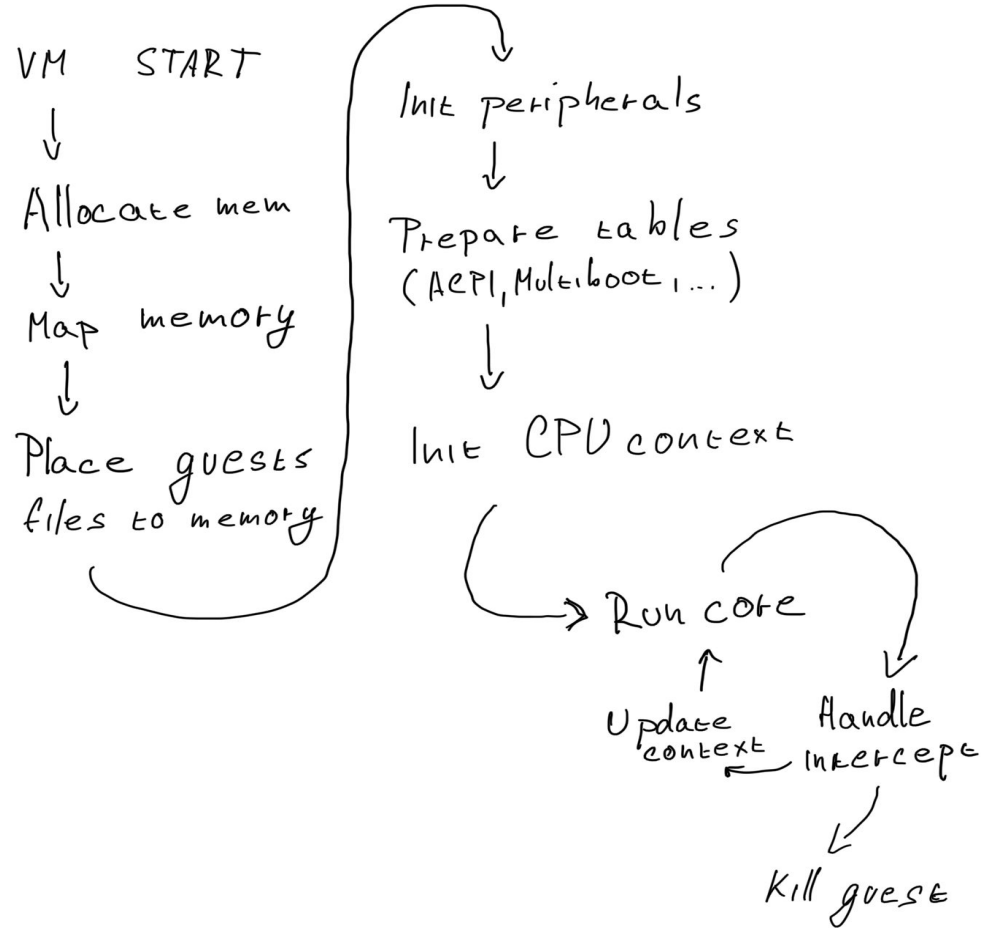 VM START
Allocate mem
Map memory
Place guests
files to memory
Init peripherals
Prepare tables
(ACPI, Multiboot, ...)
Init CPU context
Run core
Handle
intercept
Update
context
Kill guest